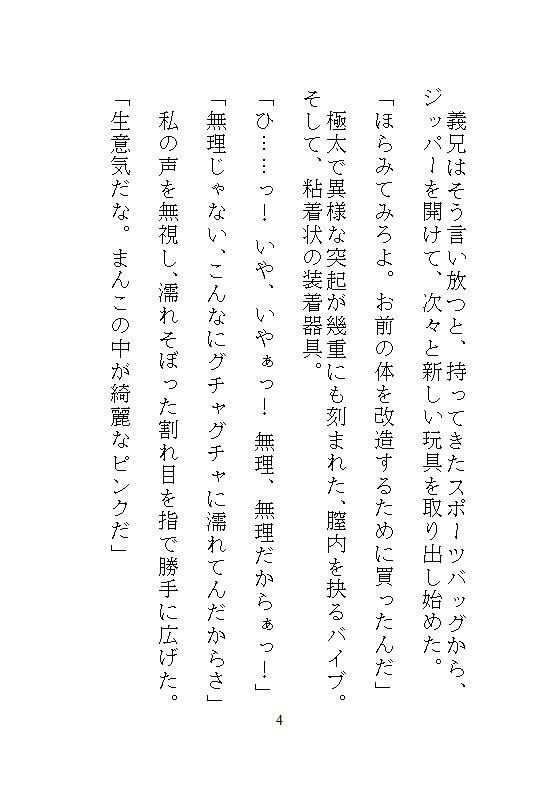 義兄はそう言い放つと、持ってきたスポーツバッグから、
ジッパーを開けて、次々と新しい玩具を取り出し始めた。
「ほらみてみろよ。お前の体を改造するために買ったんだ」
極太で異様な突起が幾重にも刻まれた、膣内を抉るバイブ。
そして、粘着状の装着器具。
「ひ……っ！いや、いやぁっ！無理、無理だからぁっ！」
「無理じゃない、こんなにグチャグチャに濡れてんだからさ」
私の声を無視し、濡れそぼった割れ目を指で勝手に広げた。
「生意気だな。まんこの中が綺麗なピンクだ」
4